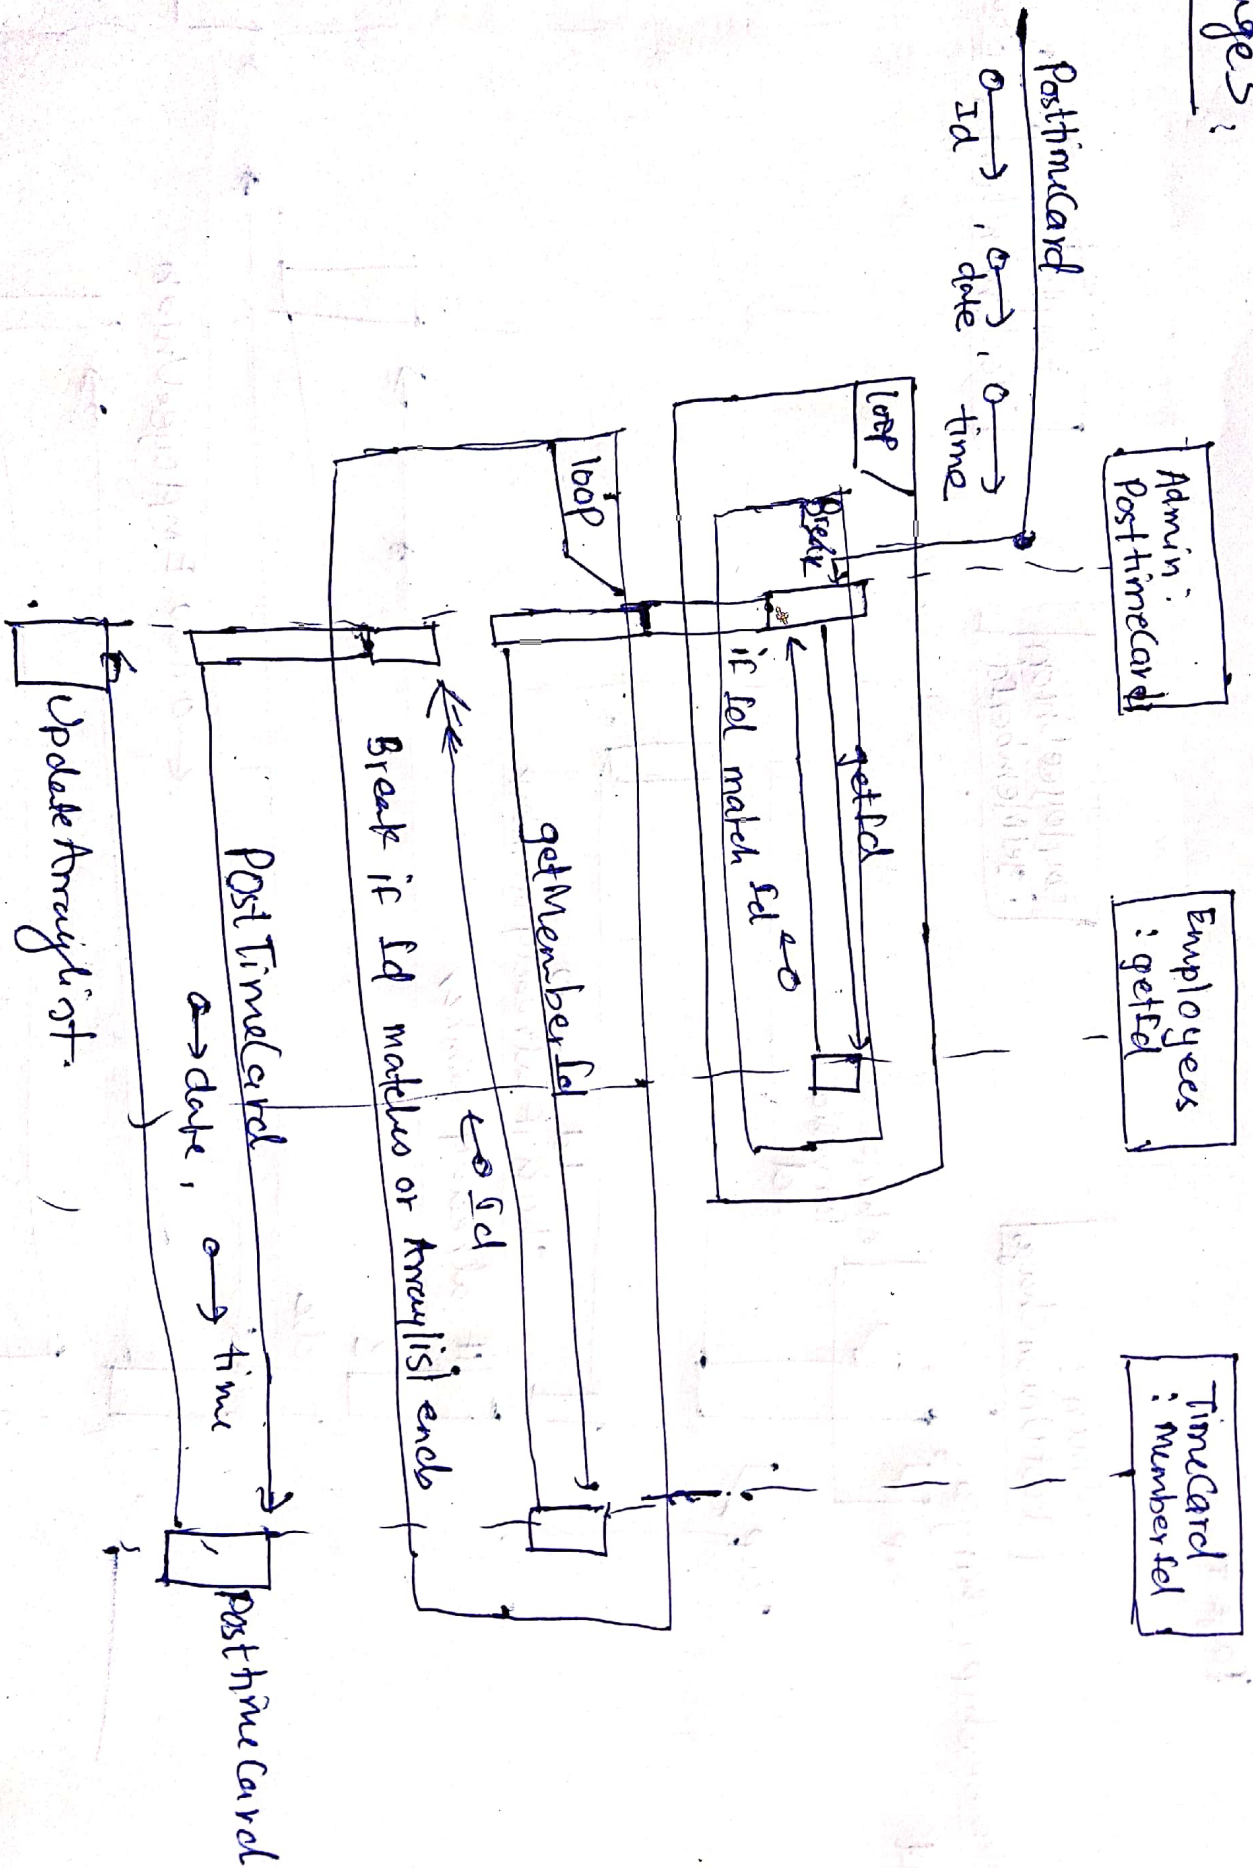 Admin :
PosttimeCard
Employees
: getId
TimeCard
: MemberId
PosttimeCard
Id , date , time
loop
Break
getId
if Id match Id
loop
getMemberId
Id
Break if Id matches or Arraylist ends
PostTimeCard
date , time
PosttimeCard
Update Arraylist.